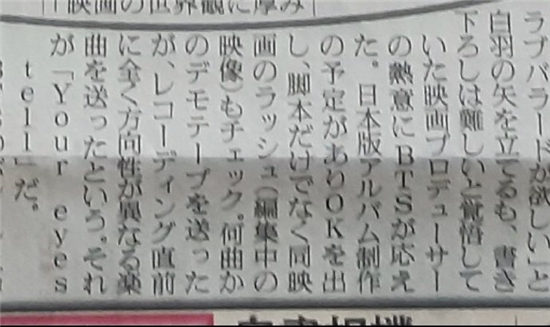 「映画の世界観に厚み
ラブバラードが欲しい」と
白羽の矢を立てるも、書き
下ろしは難しいと覚悟して
いた映画プロデューサー
の熱意にBTSが応え
た。日本版アルバム制作
の予定がありOKを出
し、脚本だけでなく同映
画のラッシュ(編集中の
映像)もチェック。何曲か
のデモテープを送った
が、レコーディング直前
に全く方向性が異なる楽
曲を送ったという。それ
が「Your eyes
tell」だ。